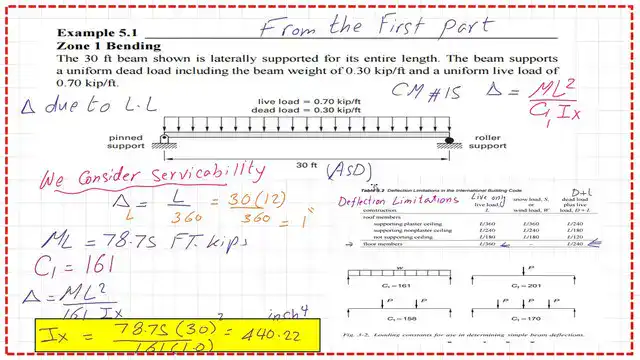 From the First part
Example 5.1
Zone 1 Bending
The 30 ft beam shown is laterally supported for its entire length. The beam supports
a uniform dead load including the beam weight of 0.30 kip/ft and a uniform live load of
0.70 kip/ft.
Δ due to L.L
CM #15 Δ = ML²
C₁ Ix
live load = 0.70 kip/ft
dead load = 0.30 kip/ft
pinned
support
roller
support
30 ft
(ASD)
We Consider Servicability
Δ L = L/360 = 30(12)/360 = 1"
ML = 78.75 FT. kips
C₁ = 161
Δ = ML²
161 Ix
inch⁴
Ix = 78.75 (30)² = 440.22
161(1.0)
Table 5.2 Deflection Limitations in the International Building Code
Deflection Limitations
Live only
D+L
construction
live load,
L
snow load, S,
or
wind load, W
dead load
plus live
load, D + L
roof members
supporting plaster ceiling L/360 L/360 L/240
supporting nonplaster ceiling L/240 L/240 L/180
not supporting ceiling L/180 L/180 L/120
floor members L/360 L/240
w
C₁ = 161
P
C₁ = 201
P P
C₁ = 158
P P P
C₁ = 170
Fig. 3-2. Loading constants for use in determining simple beam deflections.